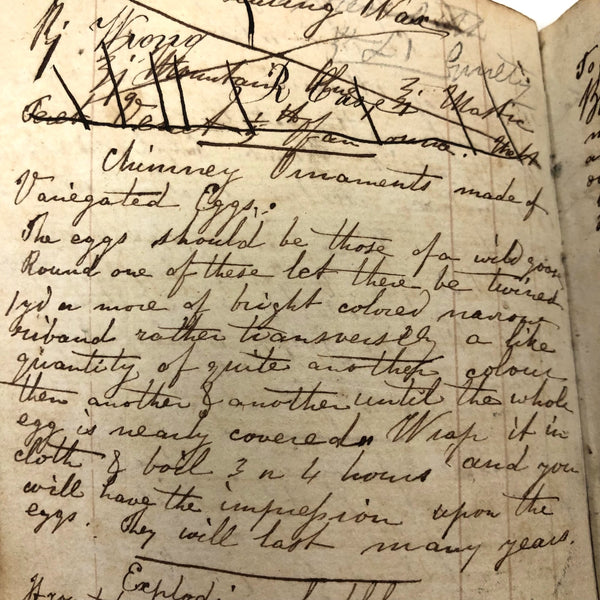 Wax
Rj Wrong
£1
3j Mountain R 3j Mastic
of an ounce.
Chimney Ornaments made of
Variegated Eggs.
The eggs should be those of a wild goose
Round one of these let there be twined
1 yd or more of bright colored narrow
riband rather transversely a like
quantity of quite another colour
then another & another until the whole
egg is nearly covered. Wrap it in
cloth & boil 3 or 4 hours and you
will have the impression upon the
eggs. They will last many years.